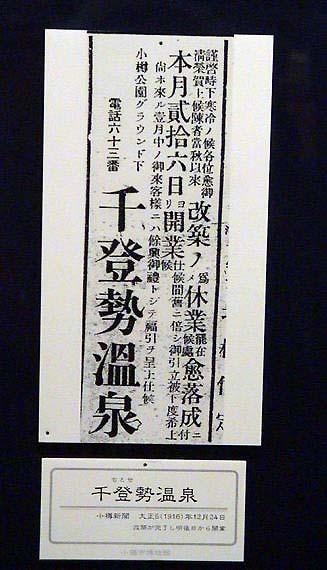 謹啓時下寒冷ノ候各位愈御
清榮賀上候陳者當秋以來
改築ノ爲メ休業罷在候處愈落成ニ付
本月貳拾六日ヨリ開業仕候間舊ニ倍シ御引立被下度希上候
尙ホ來ル壹月中ノ御來客樣ニハ餘興御禮トシテ福引ヲ呈上仕候
小樽公園グラウンド下
電話六十三番
千登勢溫泉
ちとせ
千登勢温泉
小樽新聞 大正5(1916)年12月24日
改築が完了し明後日から開業
小樽市博物館